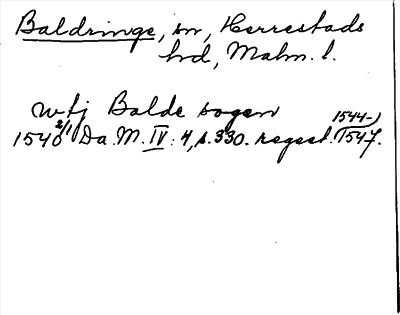 Baldringe, sn, Herrestads
hrd, Malm. l.
wtj Balde sogen
1544-)
1540 2/1 Da. M. IV: 4, s. 330. regest. 1547.